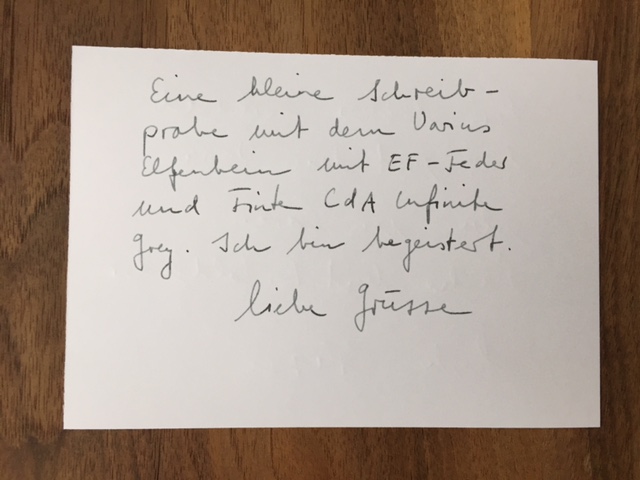 Eine kleine Schreib-
probe mit dem Varius
Elfenbein mit EF-Feder
und Tinte CdA Infinite
Grey. Ich bin begeistert.
liebe Grüsse